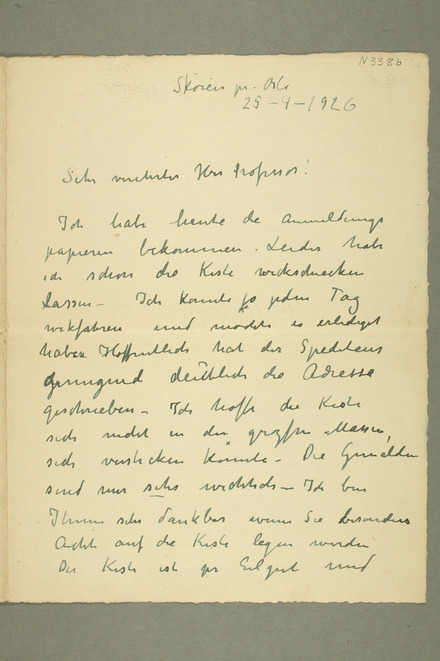 N 3386
Skøien pr. Oslo
25-4-1926
Sehr verehrter Herr Professor!
Ich habe heute de Anmeldungs
papieren bekommen. Leider habe
ich schon die Kiste
lassen – Ich konnte jo jeden Tag
wekfahren und möchte es erledigt
haben Hoffentlich hat der Spediteur
genugend deutlich die Adresse
geschrieben – Ich hoffe die Kiste
sich nicht in der grossen Massen,
sich verstecken konnte – Die Gemälden
sind mir sehr wichtich – Ich bin
Ihnen sehr dankbar wenn Sie besonders
Acht auf die Kiste legen werden
Die Kiste ist pr Eilgut und